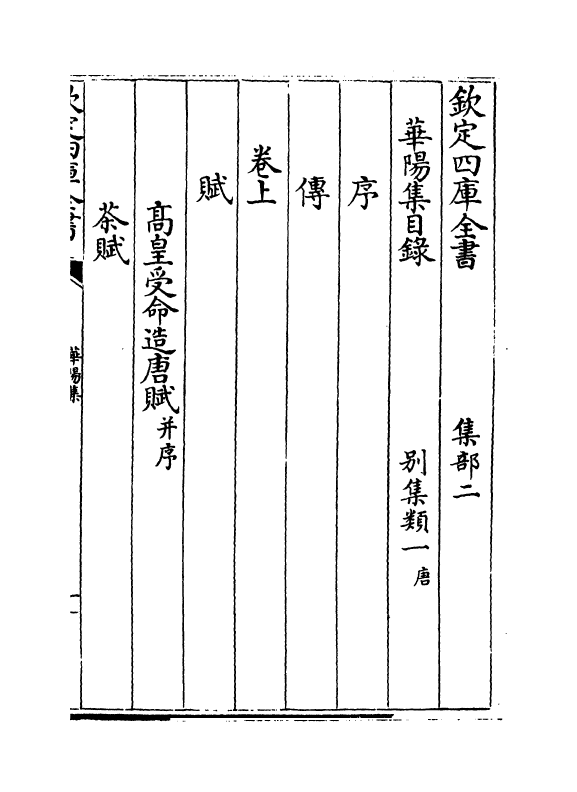 欽定四庫全書　集部二
華陽集目錄　别集類一唐
序
傳
卷上
賦
高皇受命造唐賦并序
茶賦
欽定四庫全書
華陽集
一